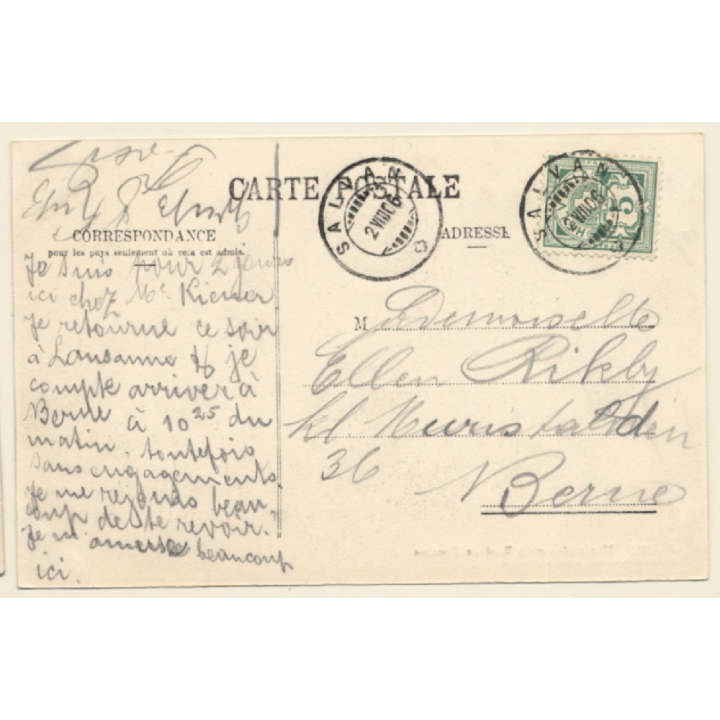 CARTE POSTALE
CORRESPONDANCE
pour les pays seulement où cela est admis.
ADRESSE
SALVAN
2.VIII.06
SALVAN
2.VIII.06
5
Je suis pour 2 jours
ici chez Mr
je retourne ce soir
à Lausanne & je
compte arriver à
Berne à 10 25 du
matin, toutefois
sans engagements.
Je me réjouis beau,
coup de te revoir.
Je m'amuse beaucoup
ici.
Mademoiselle
Ellen
kl Muristalden
36
Berne